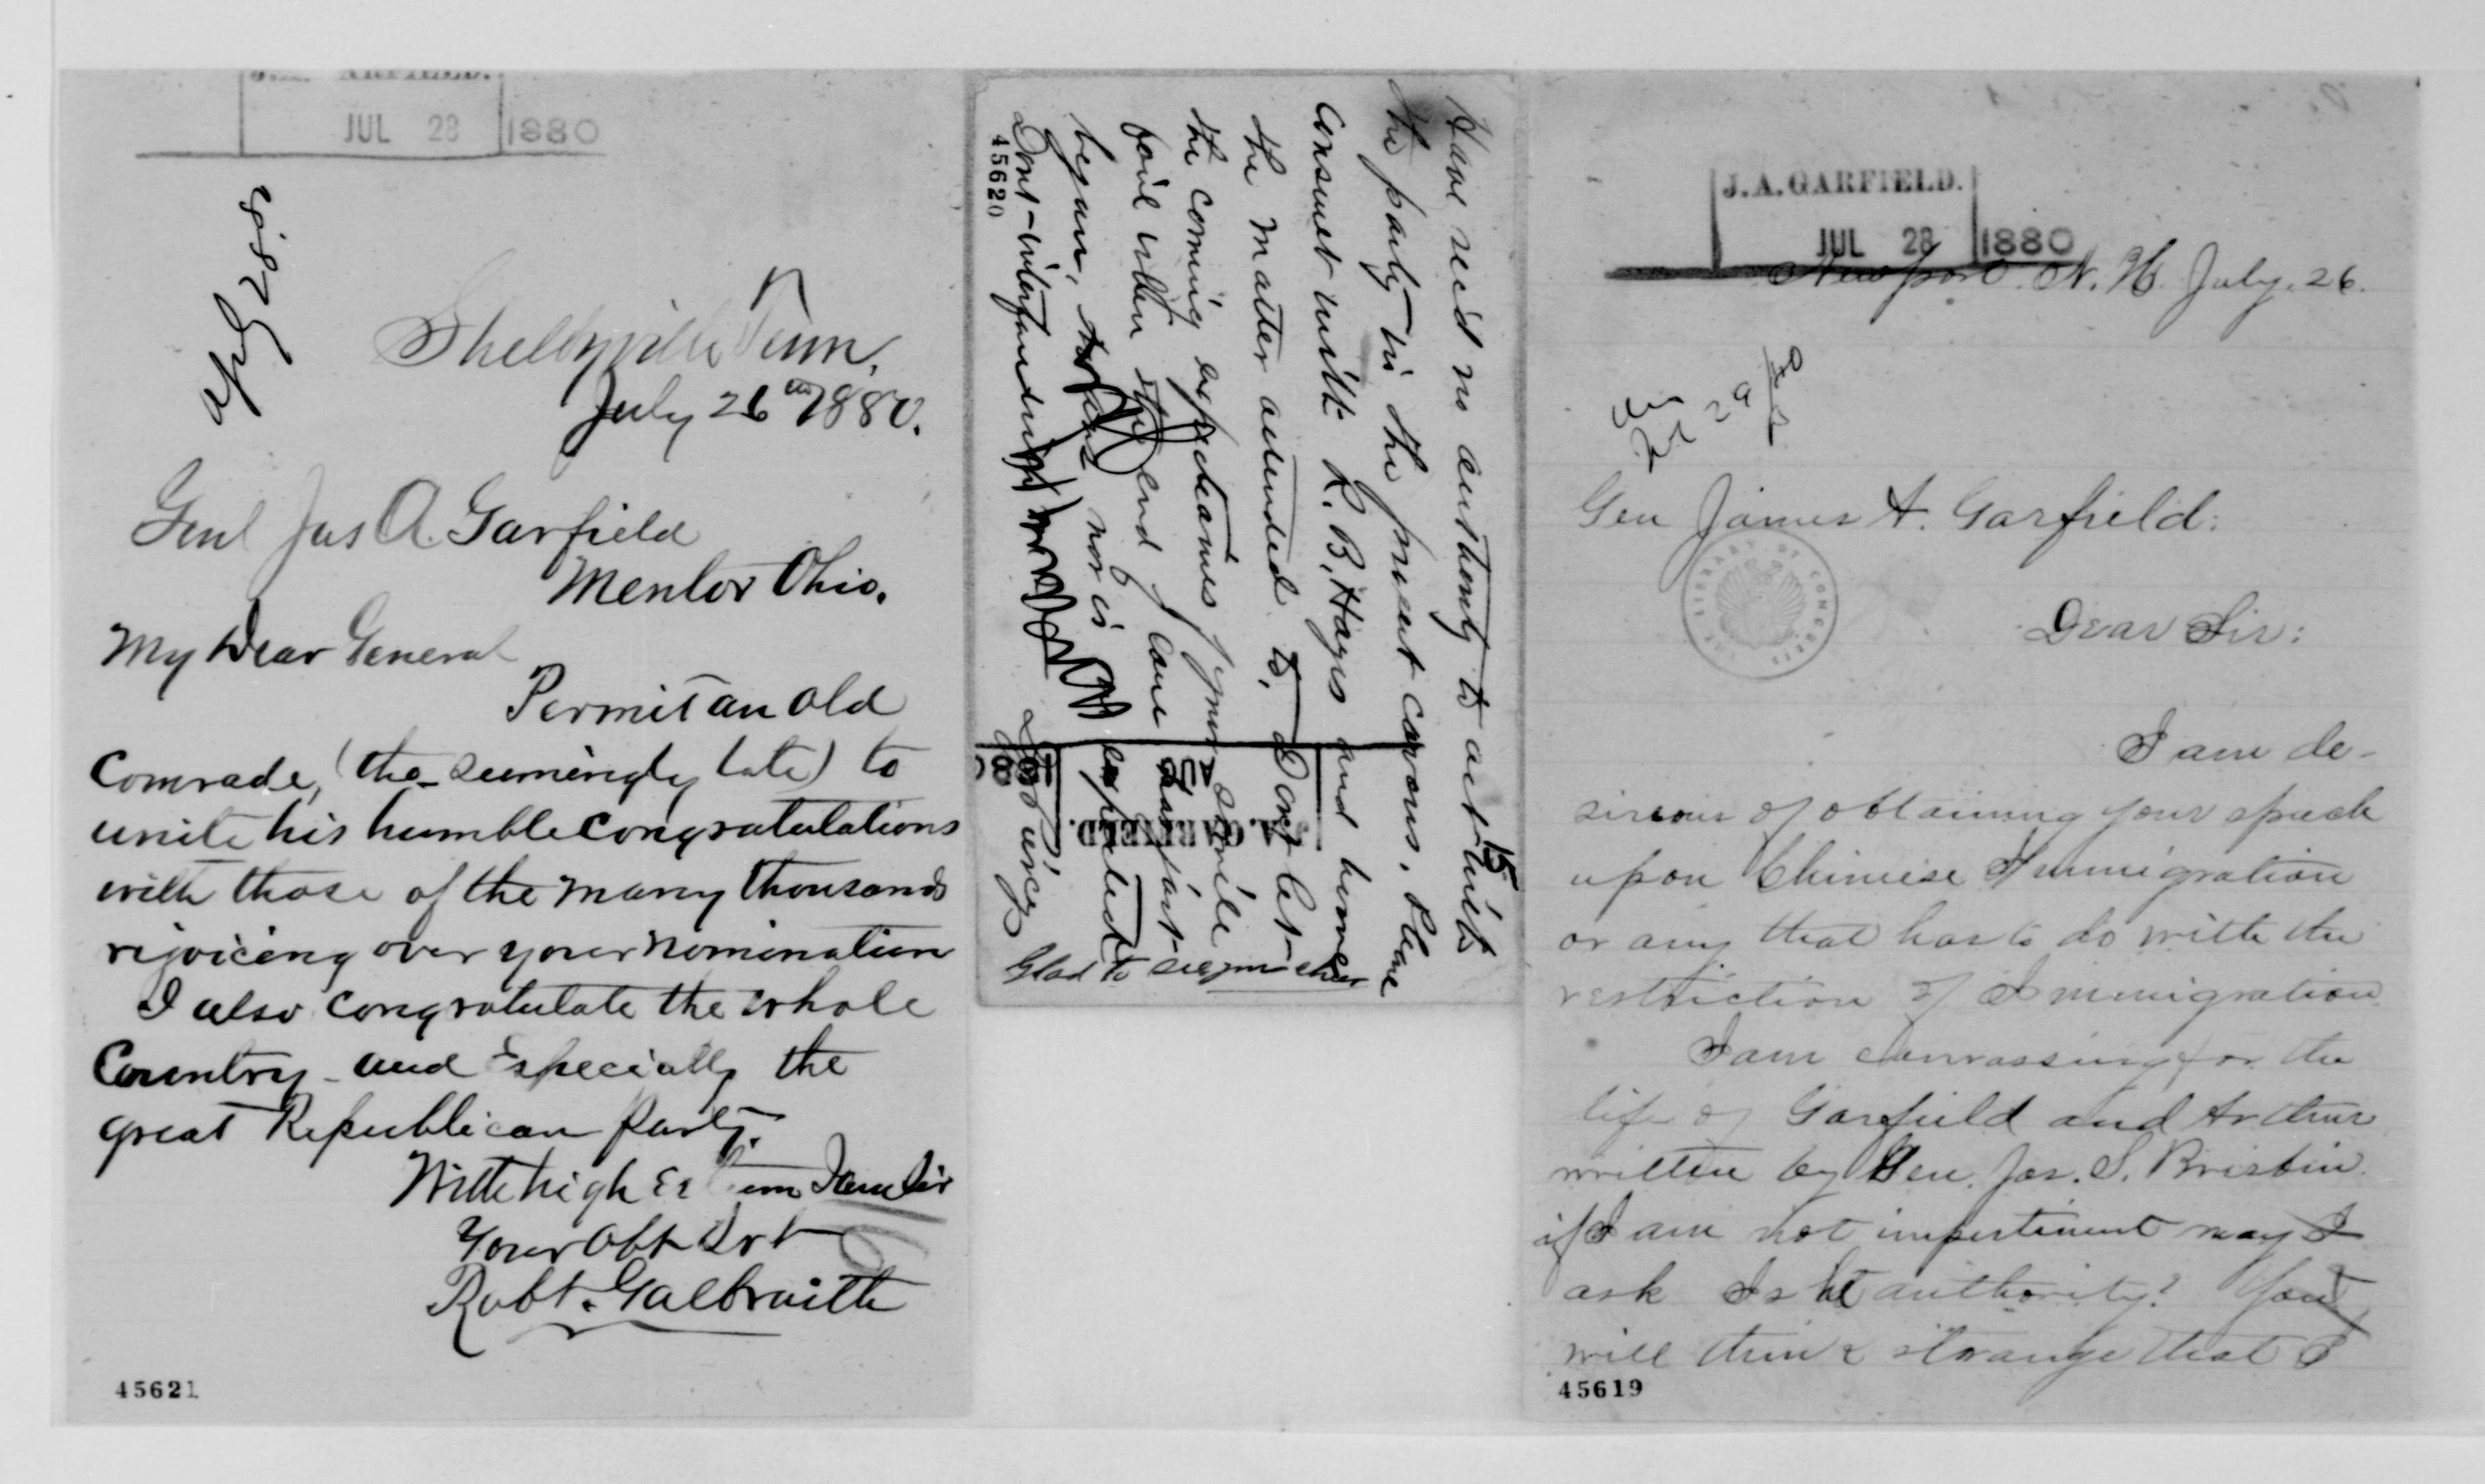 J.A. GARFIELD.
JUL 28 1880
Shelbyville Tenn.
July 26th 1880.
Genl Jas A. Garfield
Mentor Ohio.
My Dear General
Permit an old
Comrade, (tho seemingly late) to
unite his humble congratulations
with those of the many thousands
rejoicing over your nomination
I also congratulate the whole
Country and Especially the
great Republican party.
With high Esteem I am Sir
Your Obt Srvt
Robt. Galbraith
45621
Have rec'd no authority to act with
the party in the present canvass. Please
consult with R. B. Hayes and have
the matter attended to, Dont let
the coming
fail when the end of
began, nor is expected
Dont
Glad to see you
15
J.A. GARFIELD.
45620
J.A. GARFIELD.
JUL 28 1880
Newport. N. H. July. 26.
Gen James A. Garfield:
Dear Sir:
I am de-
sirous of obtaining your speech
upon Chinese Immigration
or any that has to do with the
restriction of Immigration
I am canvassing for the
life of Garfield and Arthur
written by Gen. Jas. S. Brisbin.
if I am not impertinent may I
ask Is he authority? You
will think strange that I
THE LIBRARY OF CONGRESS
45619